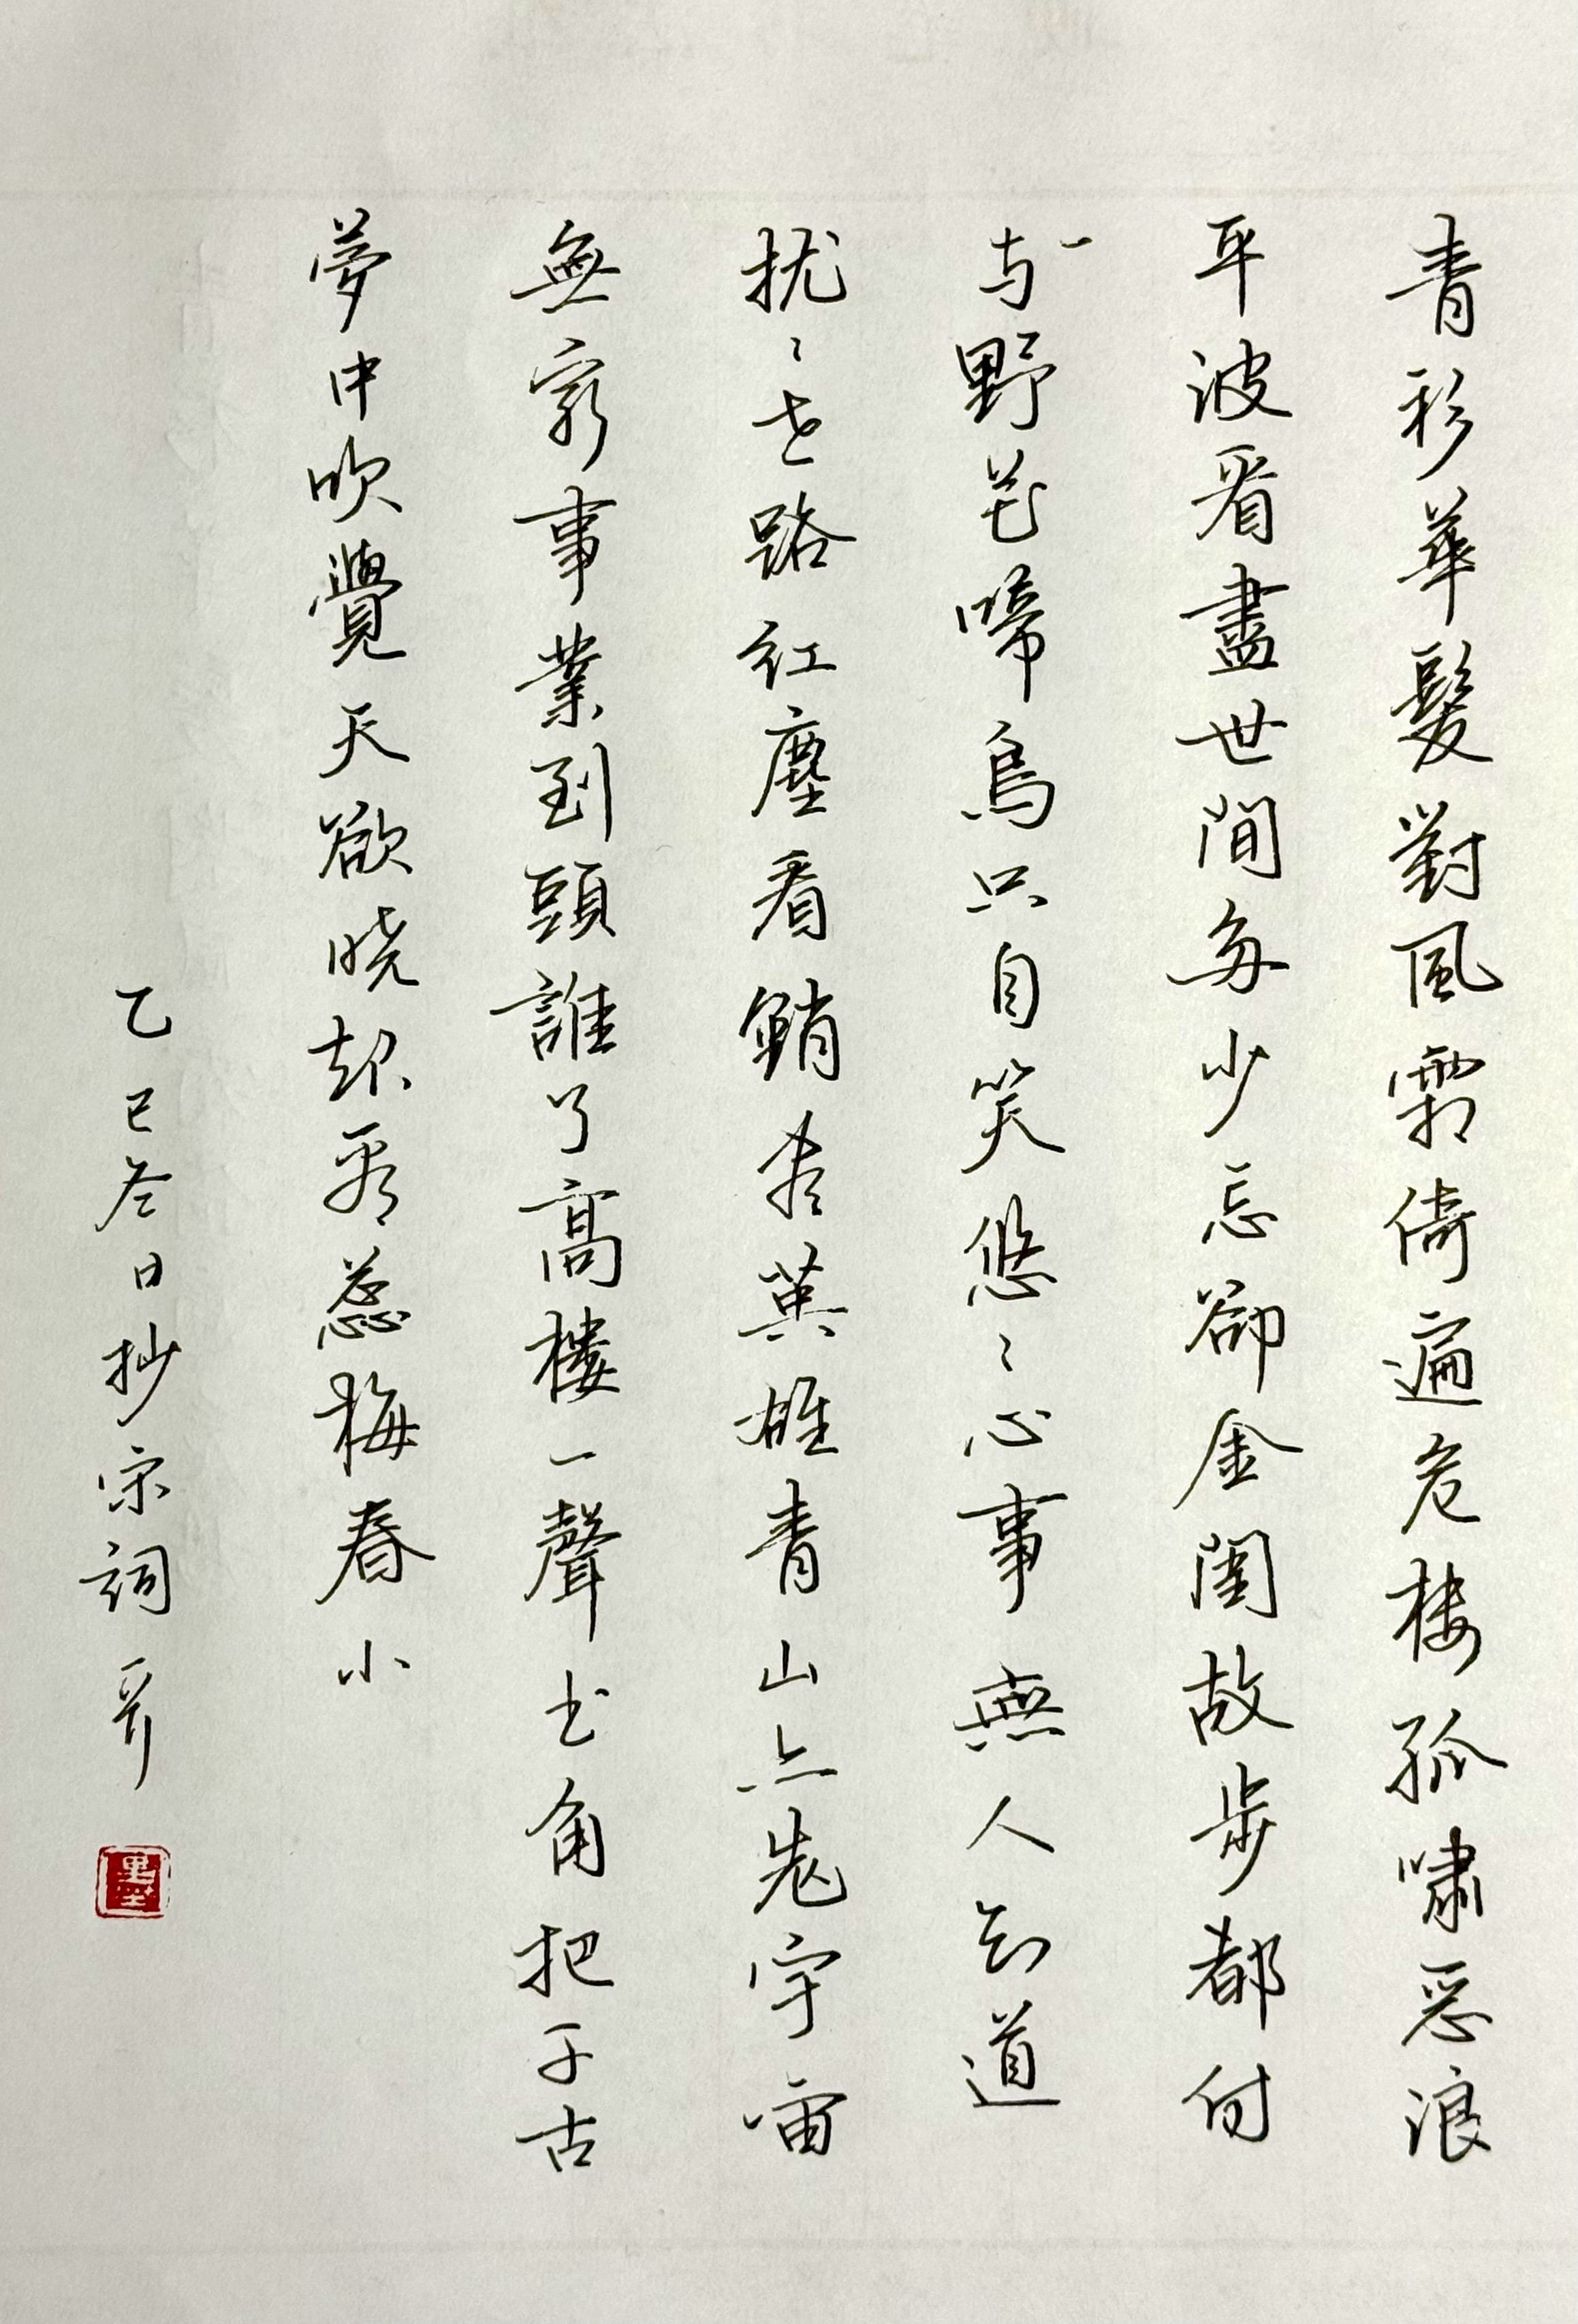 青衫華髮對風霜倚遍危樓孤嘯惡浪
平波看盡世間多少忘卻金閨故步都付
与一野花啼鳥只自笑悠〻心事無人知道
扰〻世路紅塵看銷盡英雄青山亦老宇宙
無窮事業到頭誰了高樓一聲出角把千古
夢中吹覺天欲晓起看蕊梅春小
乙巳冬日抄宋詞